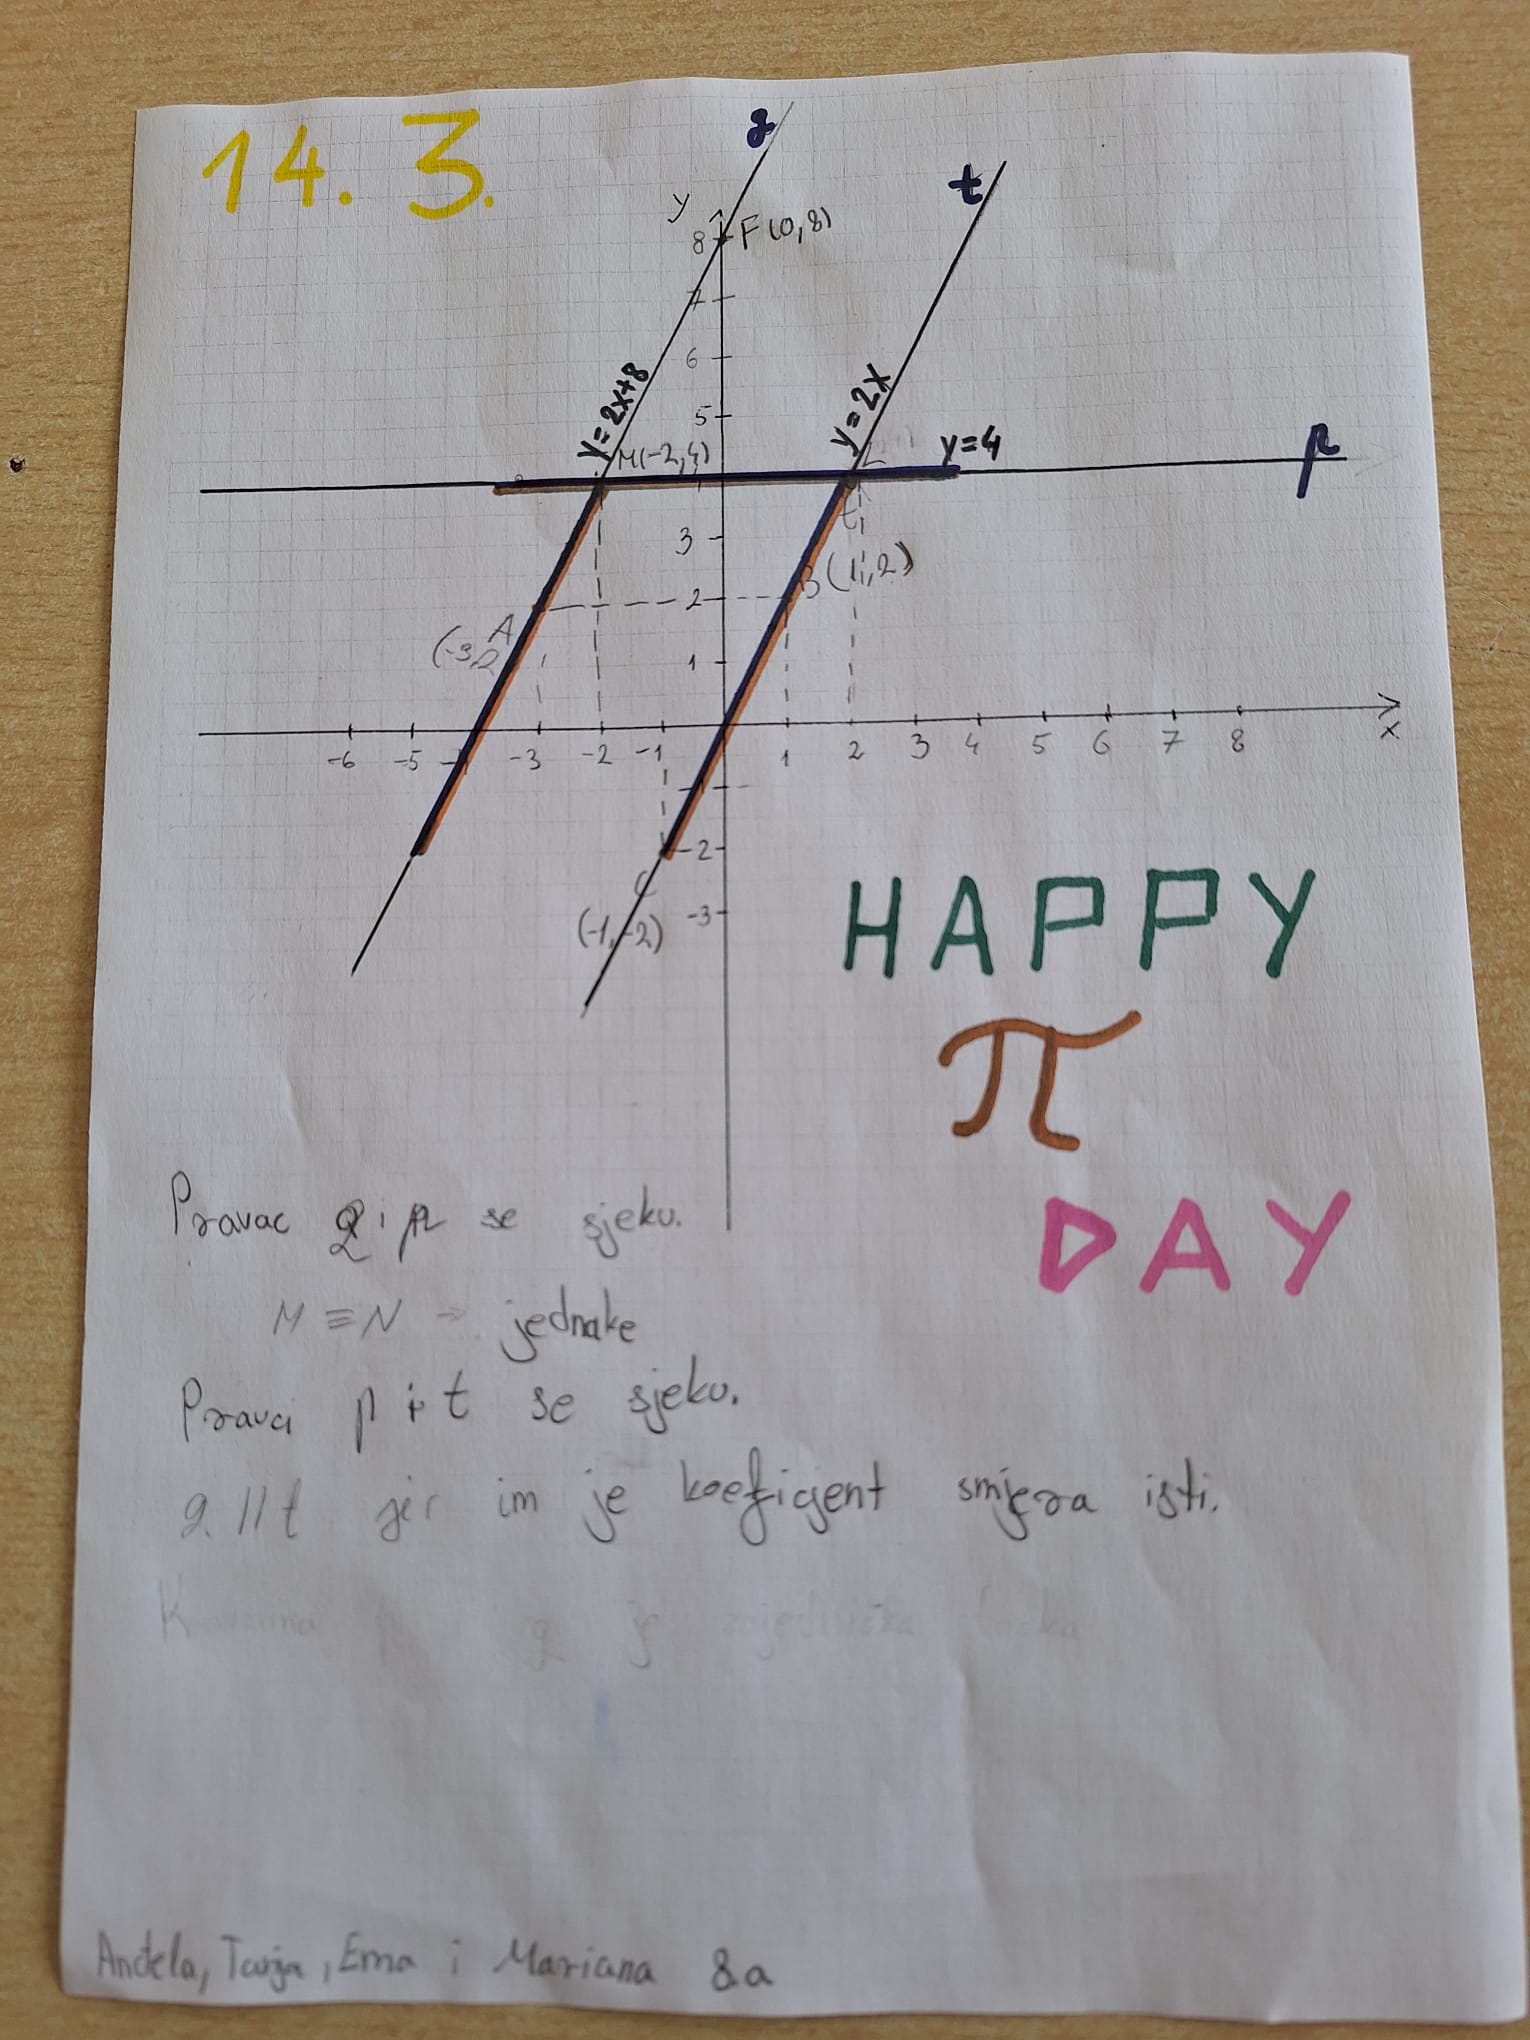 14. 3.
g
t
y
8 F(0,8)
7
6
y=2x+8
y=2x
5
M(-2,4)
y=4
p
3
B(1,2)
2
A
(-3,2
1
-6 -5 -3 -2 -1 1 2 3 4 5 6 7 8 x
-2
C
(-1,-2)
-3
HAPPY
π
DAY
Pravac i p se sjeku.
M≡N → jednake
Pravci p i t se sjeku.
g || t jer im je koeficjent smjera isti.
g je zajednička točka
Anđela, Tanja, Ema i Mariana 8.a